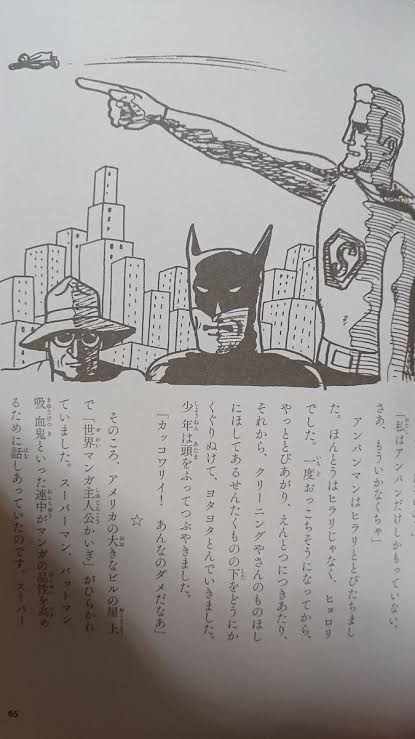 「私はアンパンだけしかもっていない。
さあ、もういかなくちゃ」
アンパンマンはヒラリととびたちまし
た。ほんとうはヒラリじゃなく、ヒョロリ
でした。一度おっこちそうになってから、
やっととびあがり、えんとつにつきあたり、
それから、クリーニングやさんのものほし
にほしてあるせんたくものの下をどうにか
くぐりぬけて、ヨタヨタとんでいきました。
少年は頭をふってつぶやきました。
「カッコワリイ! あんなのダメだなあ」
☆
そのころ、アメリカの大きなビルの屋上
で「世界マンガ主人公かいぎ」がひらかれ
ていました。スーパーマン、バットマン
吸血鬼といった連中がマンガの品性を高め
るために話しあっていたのです。スーパー
S
65